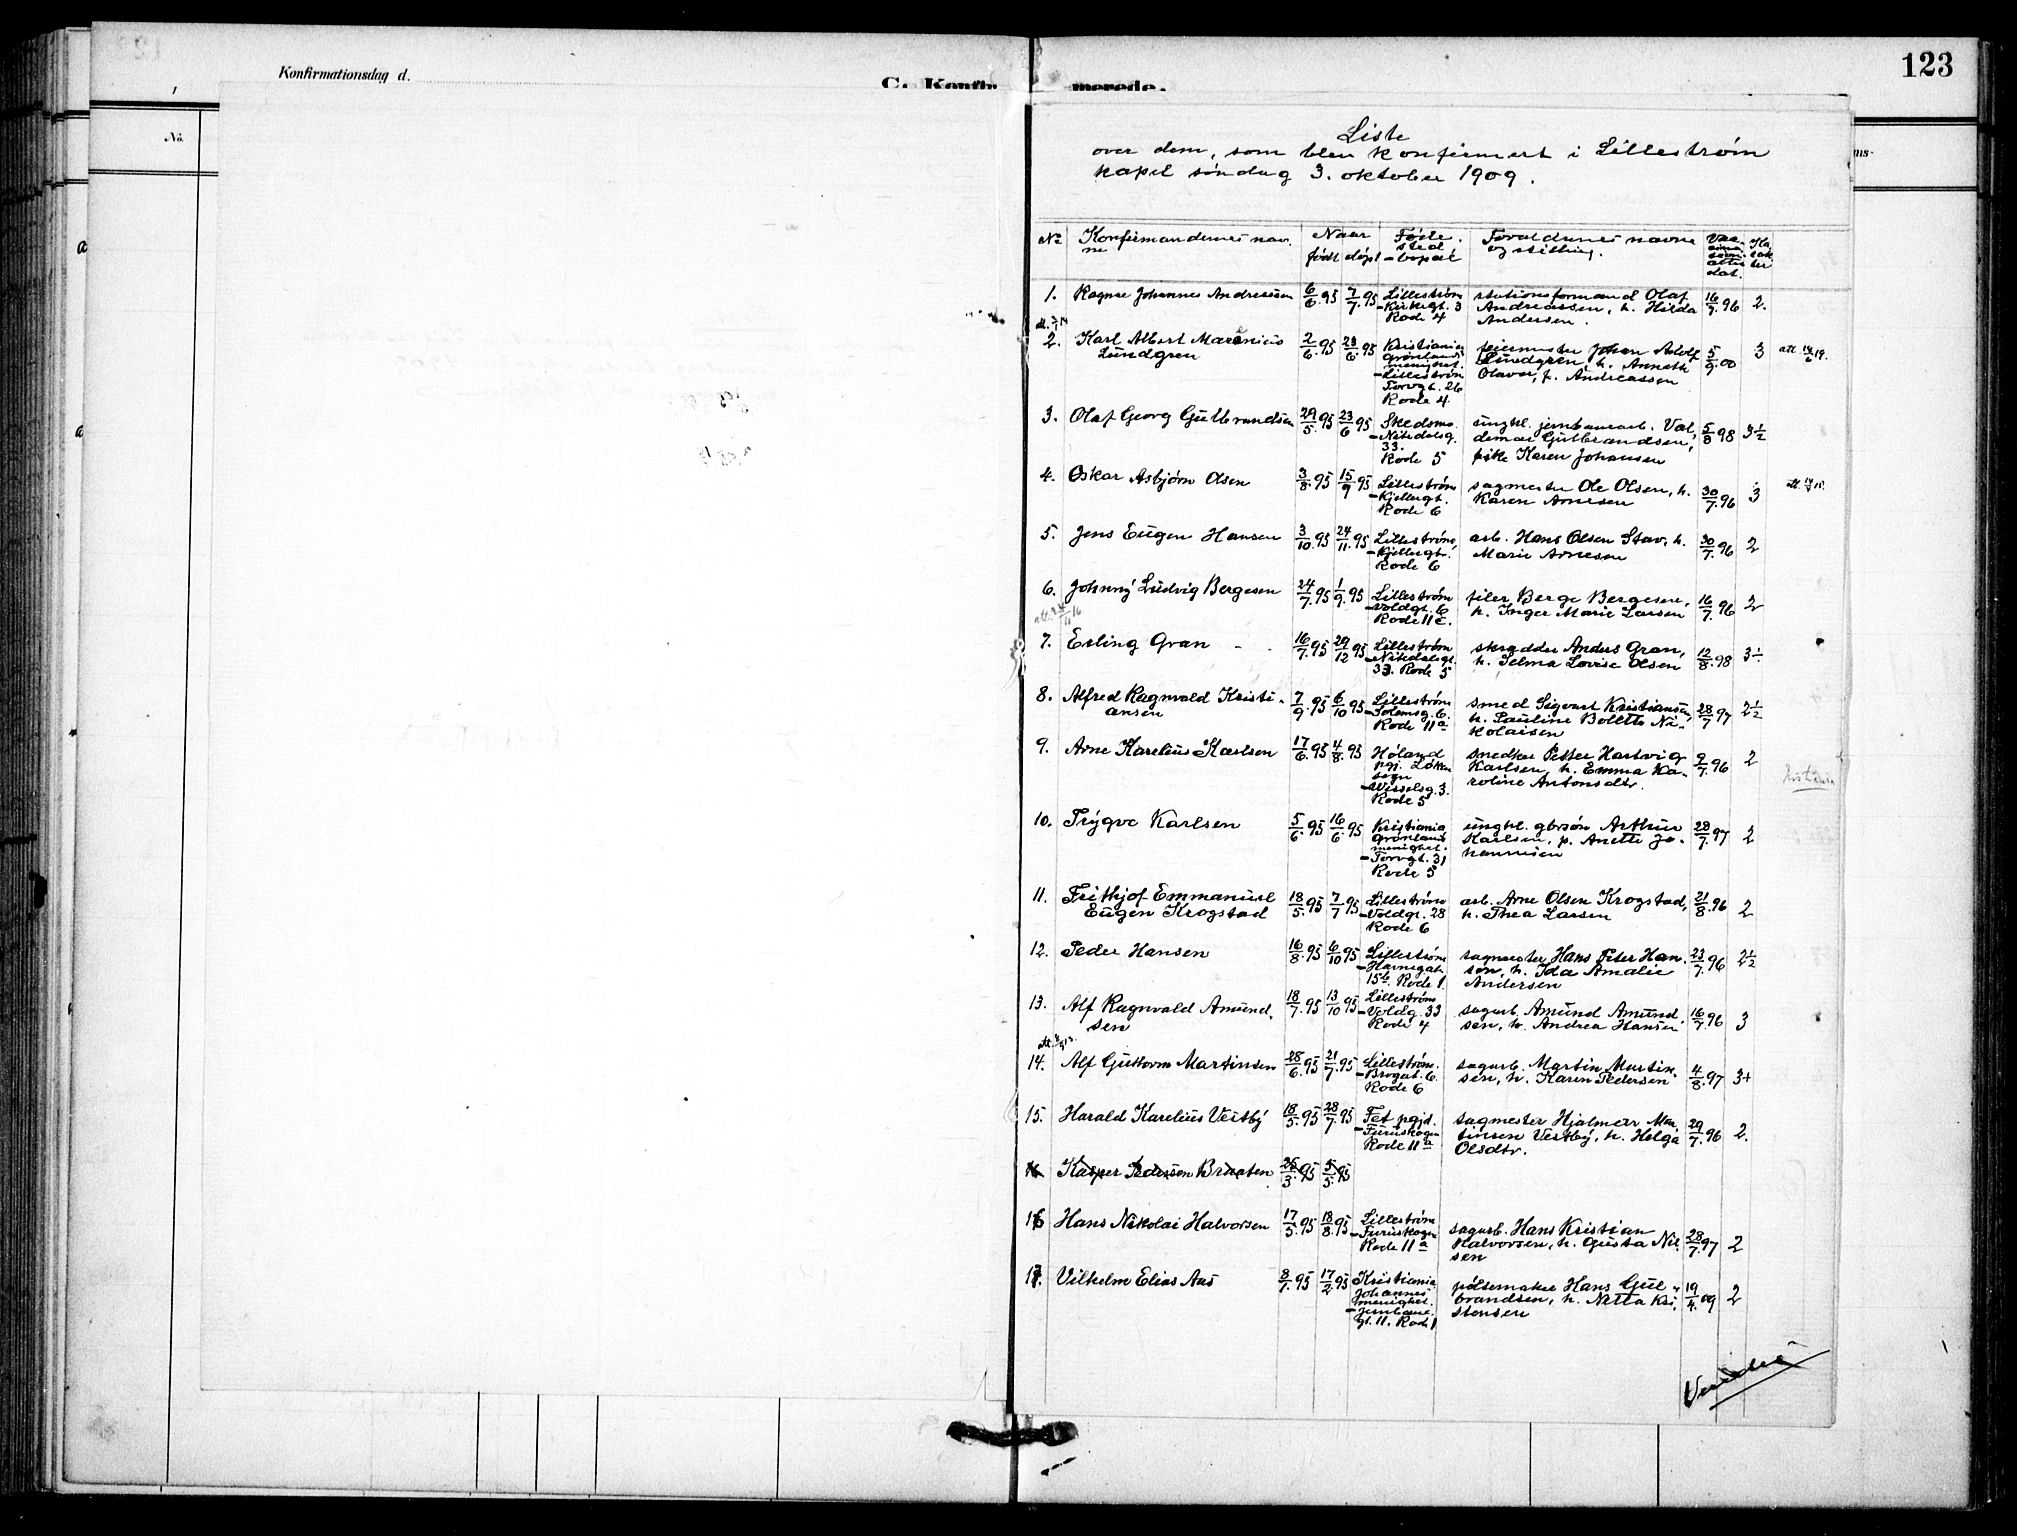 Konfirmationsdag d.
123
No.
Liste
over dem, som blev konfirmert i Lillestrøm
kapel søndag 3. oktober 1909.
No Konfirmandernes nav-
ne
Naar
født døpt
Føde-
sted
- bopæl
Forældrenes navne
og stilling.
1. Ragnar Johannes Andreassen 6/6.95 7/7.95 Lillestrøm
- Kirkegt. 3
Rode 4
stationsformand Olaf
Andreassen, h. Hilda
Andersen. 16/7.96 2.
2. Karl Albert Marenius
Lundgren 2/6.95 23/6.95 Kristiania
Grønlands
menighet.
- Lillestrøm
Torvgt. 26
Rode 4
feiermester Johan Adolf
Lundgren, h. Annette
Olava, f. Andreassen 5/9.00 3
3. Olaf Georg Gulbrandsen 29/5.95 23/6.95 Skedsmo.
- Nitedalsg.
33.
Rode 5
ungkl. jernbanearb. Val-
demar Gulbrandsen,
pike Karen Johansen 5/8.98 3½
4. Oskar Asbjørn Olsen 3/8.95 15/9.95 Lillestrøm
- Kjellergt.
Rode 6
sagmester Ole Olsen, h.
Karen Arnesen 30/7.96 3
5. Jens Eugen Hansen 3/10.95 24/11.95 Lillestrøm,
- Kjellergt.
Rode 6
arb. Hans Olsen Stav, h.
Marie Arnesen 30/7.96 2
6. Johnny Ludvig Bergesen 24/7.95 1/9.95 Lillestrøm
- Voldgt. 6
Rode 11c.
filer Berge Bergesen,
h. Inger Marie Larsen 16/7.96 2
7. Erling Gran 16/7.95 29/12.95 Lillestrøm
- Nitedalsgt.
33. Rode 5
skrædder Anders Gran,
h. Selma Lovise Olsen 12/8.98
8. Alfred Ragnvald Kristi-
ansen 7/9.95 6/10.95 Lillestrøm
- Solensg. 6.
Rode 11a
smed Sigvart Kristiansen,
h. Pauline Bolette Ni-
kolaisen 28/7.97 2½
9. Arne Karelius Karlsen 17/6.95 4/8.95 Høland
pgj. Løken
sogn
- Wesselsg. 3.
Rode 5
snedker Petter Hartvig
Karlsen, h. Emma Ka-
roline Antonsdtr. 9/7.96 2
10. Trygve Karlsen 5/6.95 16/6.95 Kristiania
Grønlands
menighet.
- Torvgt. 31
Rode 5
ungkl. gbrsøn Arthur
Karlsen, p. Anette Jo-
hannesen 28/7.97 2
11. Frithjof Emmanuel
Eugen Krogstad 18/5.95 7/7.95 Lillestrøm
- Voldgt. 28
Rode 6
arb. Arne Olsen Krogstad,
h. Thea Larsen 21/8.96 2
12. Peder Hansen 16/8.95 6/10.95 Lillestrøm
- Havnegat.
15b. Rode 1.
sagmester Hans Peter Han-
sen, h. Ida Amalie
Andersen 23/7.96 2½
13. Alf Ragnvald Amund-
sen 18/7.95 13/10.95 Lillestrøm
- Voldg. 33
Rode 4
sagarb. Amund Amund-
sen, h. Andrea Hansen 16/7.96 3
14. Alf Guttorm Martinsen 28/6.95 21/7.95 Lillestrøm.
- Brogat. 6.
Rode 6
sagarb. Martin Martin-
sen, h. Karen Pedersen 4/8.97 3+
15. Harald Karelius Vestby 18/5.95 28/7.95 Fet pgjd.
- Furuskogen
Rode 11a
sagmester Hjalmar Mar-
tinsen Vestby, h. Helga
Olsdtr. 29/7.96 2.
Kasper Pedersen Braaten 26/3.95 5/5.95
16 Hans Nikolai Halvorsen 17/5.95 18/8.95 Lillestrøm
- Furuskogen
Rode 11a
sagarb. Hans Kristian
Halvorsen, h. Gusta Nil-
sen 28/7.97 2
17. Vilhelm Elias Aas 8/1.95 17/2.95 Kristiania
Johannes
menighet.
- Jernbane-
gt. 11. Rode 1
pølsemaker Hans Gul-
brandsen, h. Netta Kri-
stensen 19/4.09 2